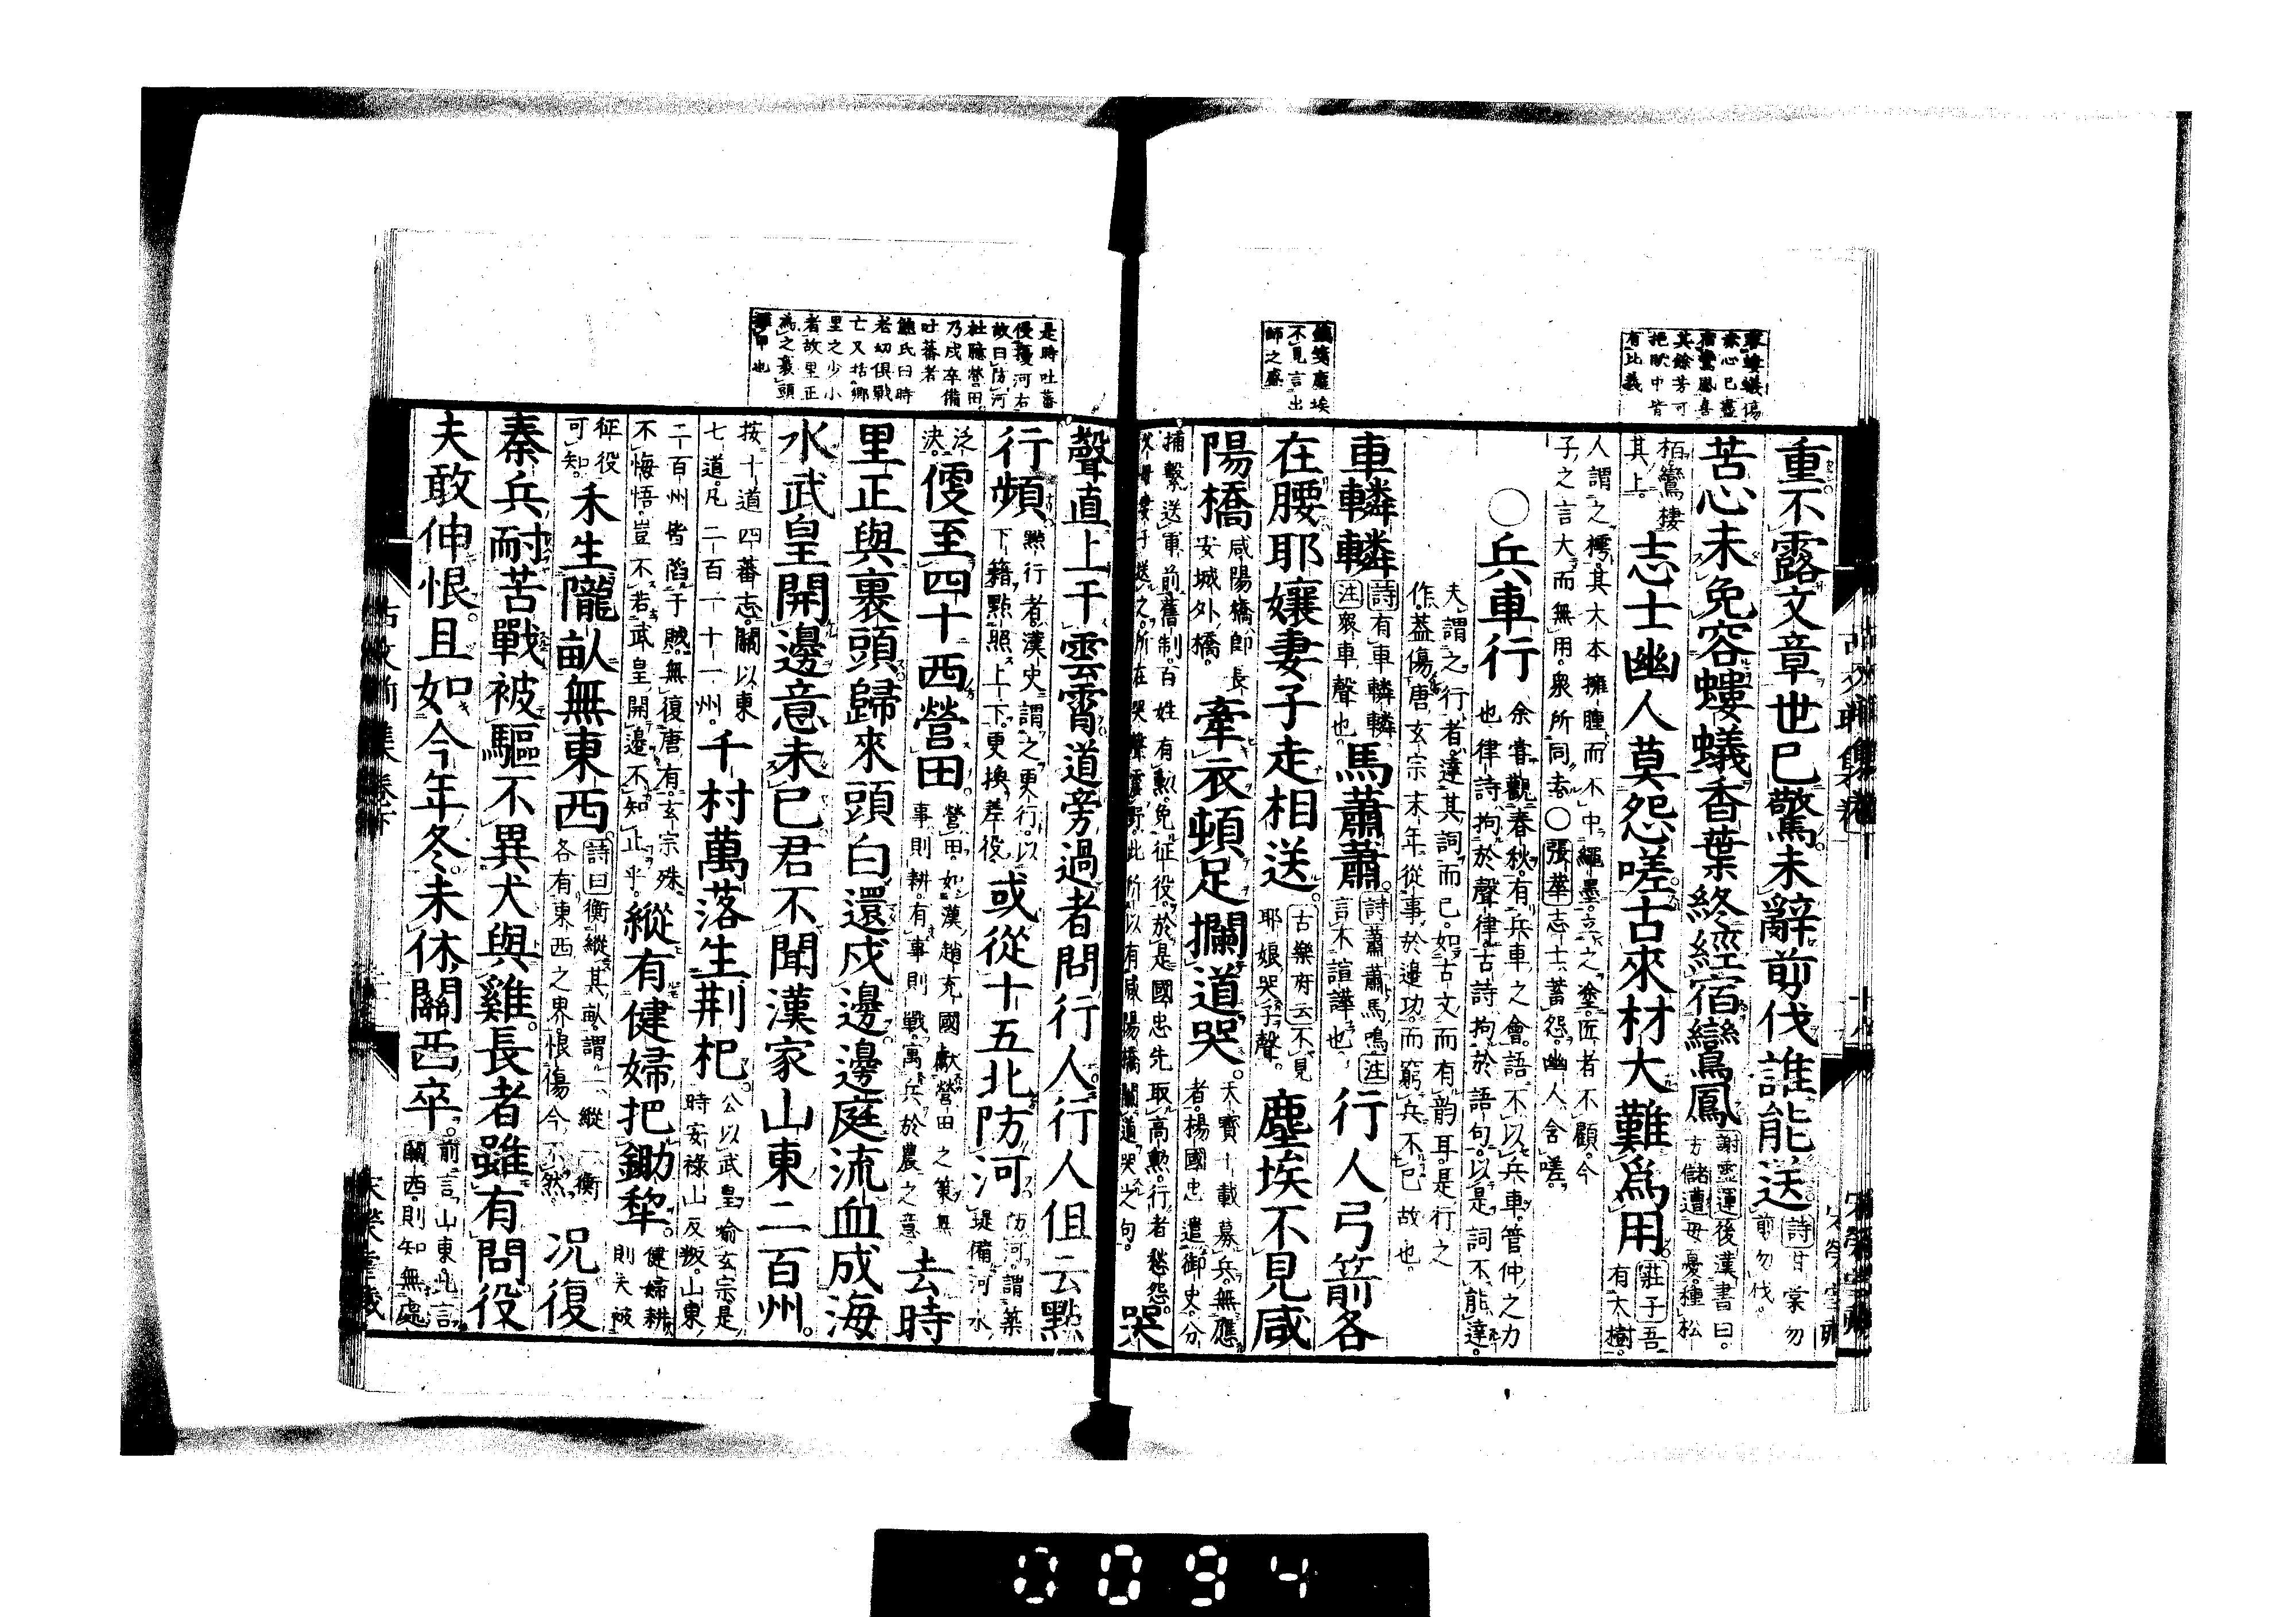 重不露文章世已驚未辭剪伐誰能送詩甘棠勿
剪勿伐。
苦心未免容螻蟻香葉終經宿鸞鳳謝靈運後漢書曰。
方儲遭母憂。種松
栢鸞棲
其上。志士幽人莫怨嗟古來材大難爲用莊子吾
有大樹。
人謂之樗。其大本擁腫而不中繩墨。立之塗。匠者不顧。今
子之言大而無用。衆所同去。○張華志士蓄怨。幽人含嗟。
○兵車行余嘗觀春秋。有兵車之會。語不以兵車。管仲之力
也。律詩拘於聲律。古詩拘於語句。以是詞不能達。
夫謂之行者。達其詞而已。如古文而有韵耳。是行之
作。蓋傷唐玄宗末年從事於邊功。而窮兵不已故也。
車轔轔詩有車轔轔
注衆車聲也。馬蕭蕭詩蕭蕭馬鳴注
言不諠譁也。行人弓箭各
在腰耶孃妻子走相送。古樂府云不見
耶娘哭子聲。塵埃不見咸
陽橋咸陽橋。卽長
安城外橋。牽衣頓足攔道哭。天寶十載募兵。無應
者。楊國忠遣御史。分
捕繫送軍前。舊制。百姓有勲免征役。於是國忠先取高勲。行者愁怨。
父母妻子送之。所在哭聲震野。此所以有咸陽橋攔道哭之句。哭
聲直上干雲霄道旁過者問行人。行人但云點
行頻點行者。漢史謂之更行。以
下籍點照上下。更換差役。或從十五北防河防河。謂築
堤備河水
泛
決。便至四十西營田。營田。如漢趙充國獻營田之策。無
事則耕。有事則戰。寓兵於農之意。去時
里正與裹頭歸來頭白還戍邊邊庭流血成海
水武皇開邊意未已君不聞漢家山東二百州。
按十道四蕃志。關以東
七道。凡二百一十一州。千村萬落生荆杞。公以武皇喻玄宗。是
時安祿山反叛。山東
二百州皆陷于賊。無復唐有。玄宗殊
不悔悟。豈不若武皇開邊不知止乎。縱有健婦把鋤犂。健婦耕
則夫被
征役
可知。禾生隴畝無東西。詩曰衡縱其畝。謂一縱一衡
各有東西之界。恨傷今不然。況復
秦兵耐苦戰被驅不異犬與雞。長者雖有問役
夫敢伸恨。且如今年冬。未休關西卒。前言山東。此言
關西。則知無處
螻蟻傷
苦心已盡
宿鸞鳳喜
其餘芳可
把賦中皆
有比義
塵埃
不見言出
師之盛
是時吐蕃
侵擾河右
故曰防河
杜臆營田
乃戍卒備
吐蕃者
鮑氏曰時
老幼俱戰
亡又括鄉
里之少小
者故里正
為之裹頭
也
古文前集卷下
十八